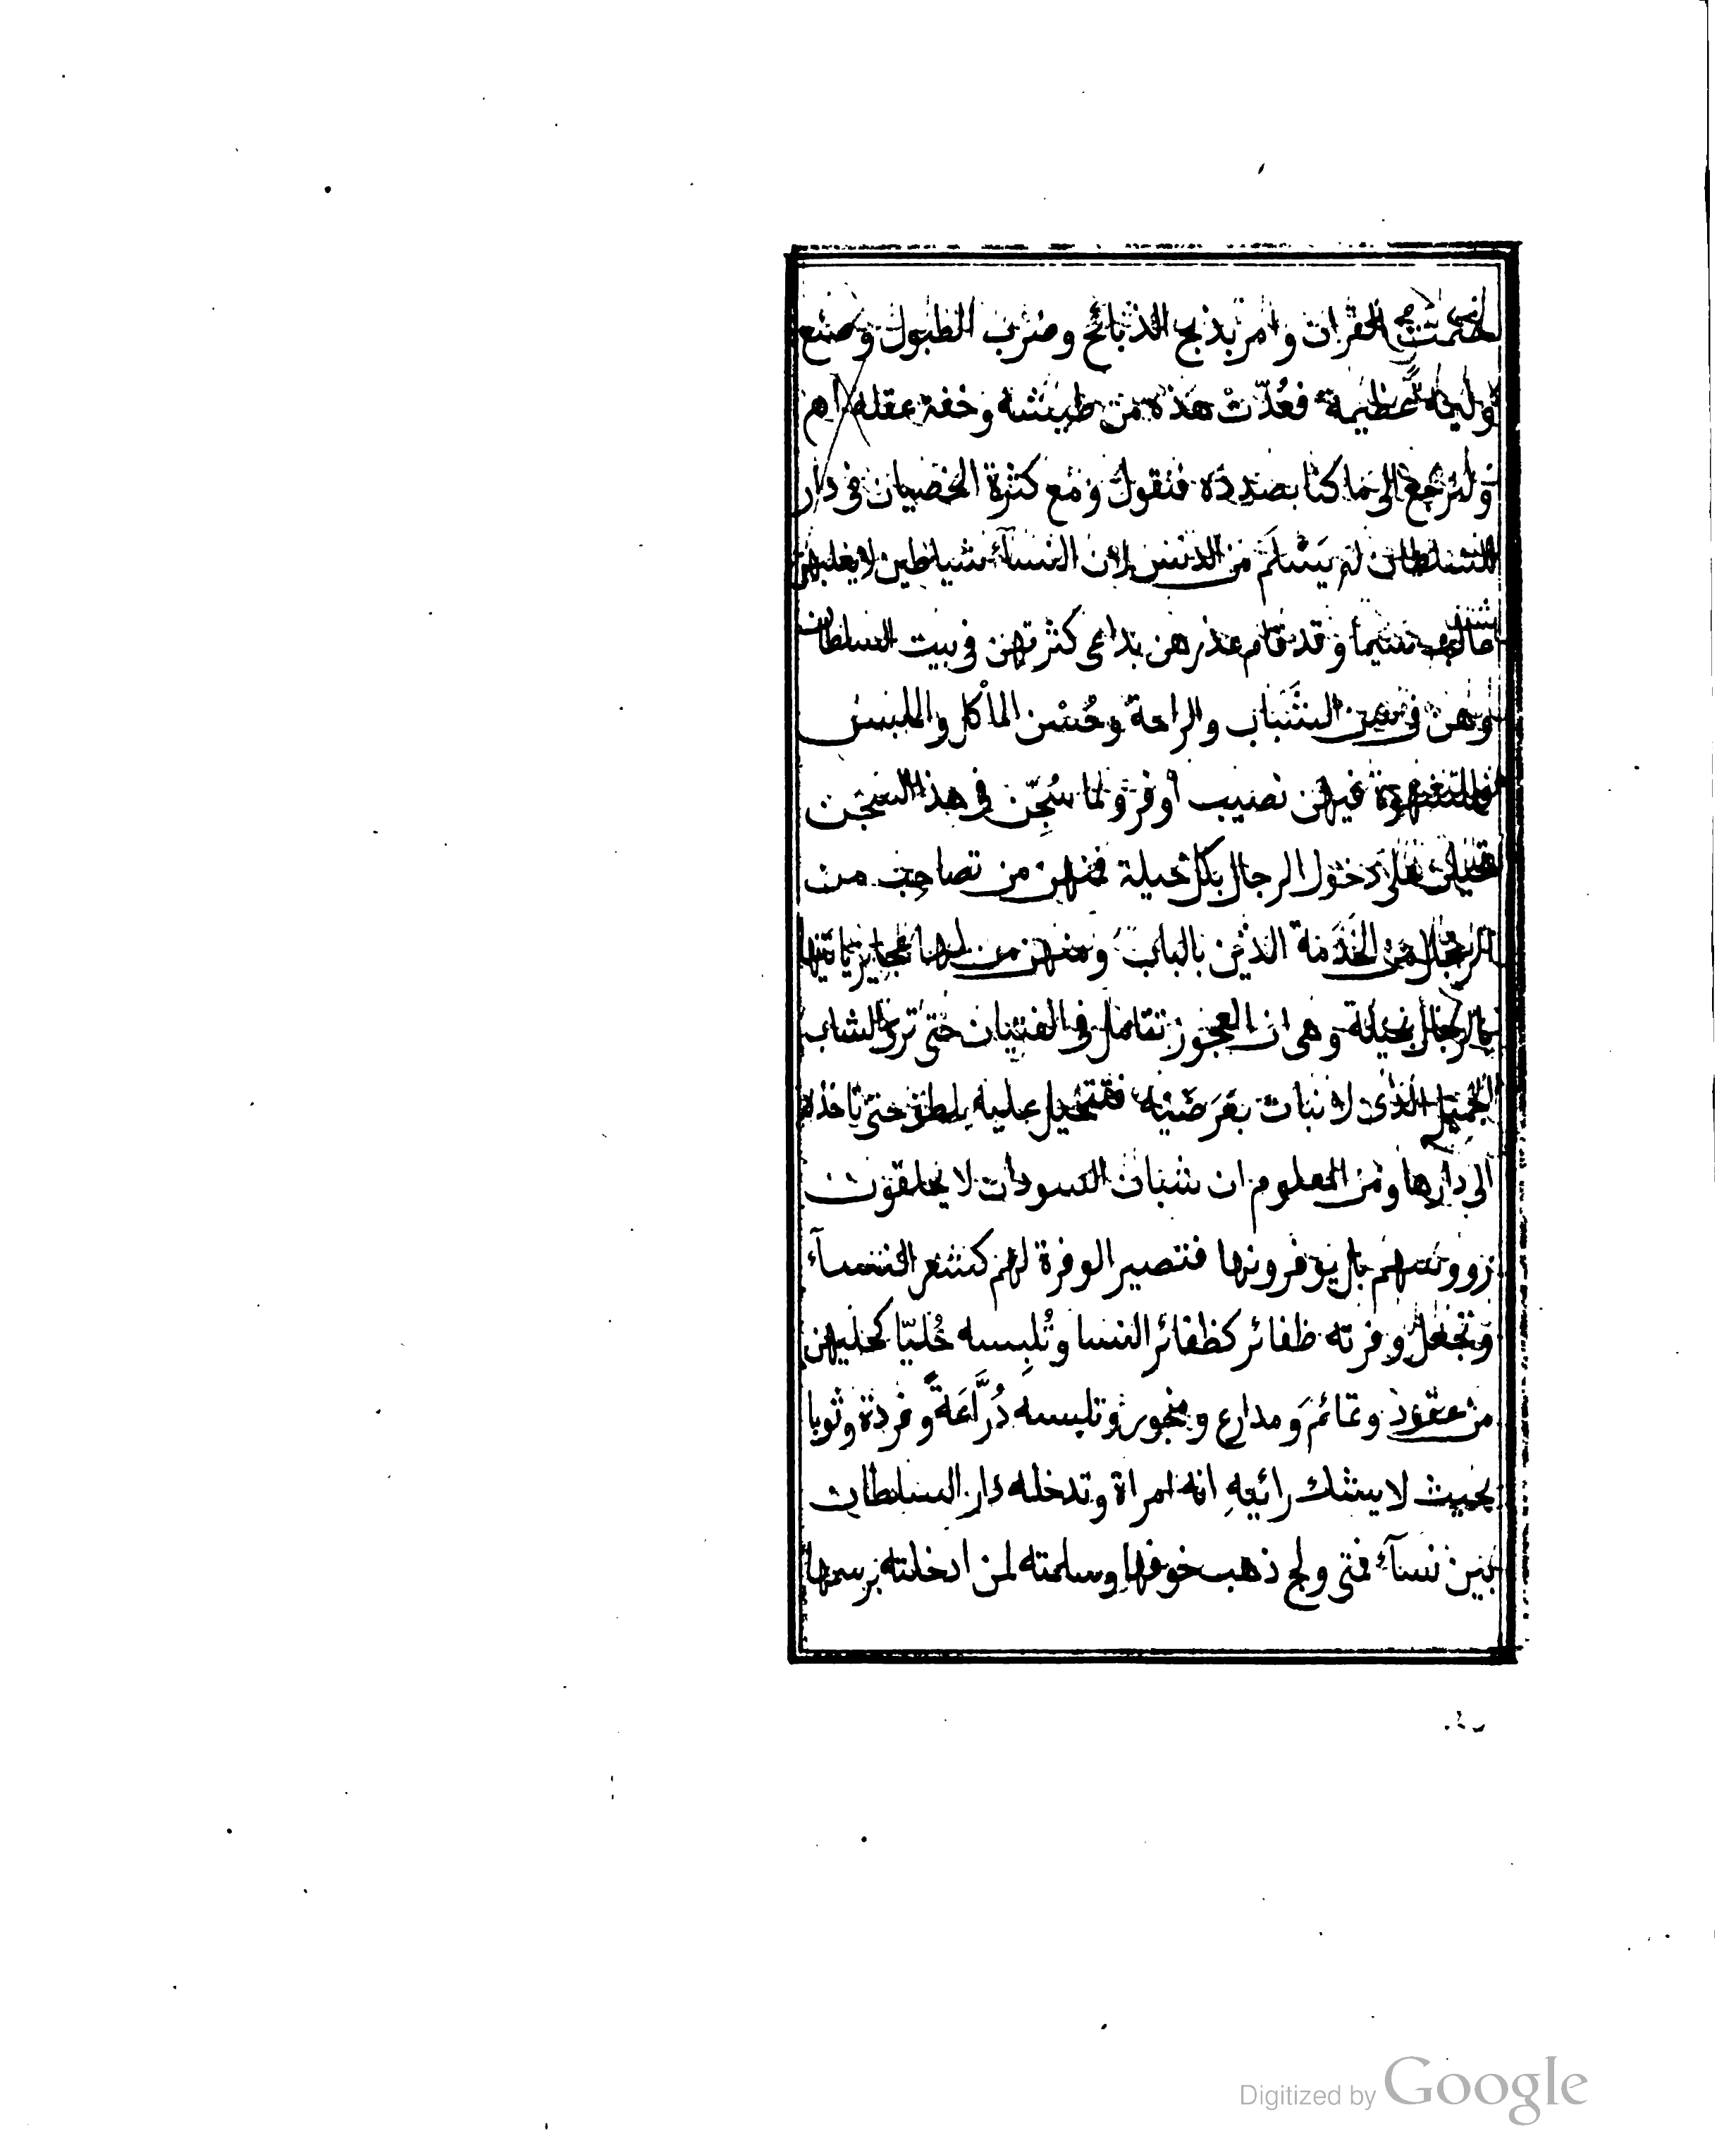 ختمت القرآن وامر بذبح الذبائح وضرب الطبول وصنع
وليمة عظيمة فعُدّتْ هذه من طيشه وخفة عقله اهـ
ولنرجع الى ما كنا بصدده فنقول ومع كثرة الخصيان فى دار
السلطان لم يَسْلَم من الدنس لان النسآء شياطين لا يغلبهن
لا سيما وقد قام عذرهن بداعى كثرتهن فى بيت السلطان
وهن فى سن الشباب والراحة وحُسْن المأكل والملبس
فيهن نصيب أوفر ولما سُجِنّ فى هذا السجن
تحيلن على دخول الرجال بكل حيلة فمنهن من تصاحب من
الرجال من الخَدَمة الذين بالباب ومنهن من لها عجايز ياتينها
بالرجال بحيلة وهى ان العجوز تتامل فى الفتيان حتى ترى الشاب
الجميل الذى لا نبات بعَرَضَيْه فتتحيل عليه بلطف حتى تاخذه
الى دارها ومن المعلوم ان شبان السودان لا يحلقون
رووسهم بل يوفرونها فتصير الوفرة لهم كشعر النسآء
وتجعل وفرته ظفائر كظفائر النسا وتُلبِسه حُليّا كحليهن
من عقود وتمائم ومدارع ومنجور وتلبسه دُرَّاعَةً وفردة وثوبا
بحيث لا يشك رائيه انه امراة وتدخله دار السلطان
بين نسآء فمتى ولج ذهب خوفها وسلمته لمن ادخلته برسمها
Digitized by Google